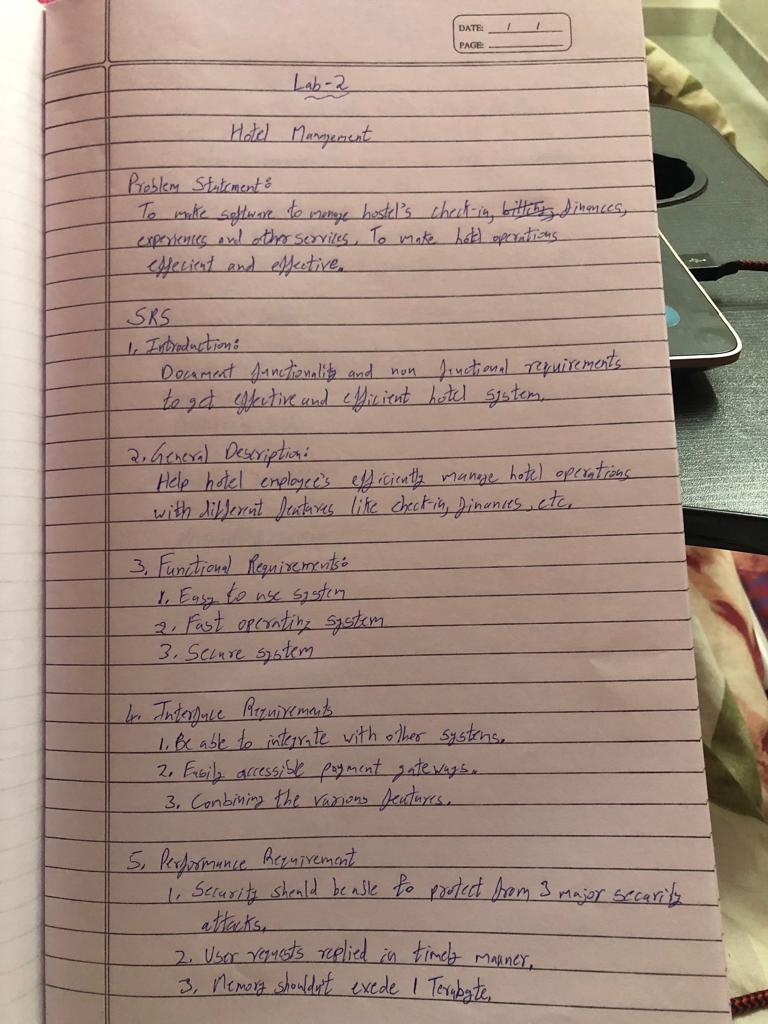 DATE: / /
PAGE:
Lab-2
Hotel Management
Problem Statement:
To make software to manage hostel's check-in, billing, finances,
experiences and other services. To make hotel operations
effecient and effective.
SRS
1. Introduction:
Document functionality and non functional requirements
to get effective and efficient hotel system.
2. General Description:
Help hotel employee's efficiently manage hotel operations
with different features like check-in, finances, etc.
3. Functional Requirements:
1. Easy to use system
2. Fast operating system
3. Secure system
4. Interface Requirements
1. Be able to integrate with other systems.
2. Easily accessible payment gateways.
3. Combining the various features.
5. Performance Requirement
1. Security should be able to protect from 3 major security
attacks.
2. User requests replied in timely manner.
3. Memory shouldn't exede 1 Terabyte.